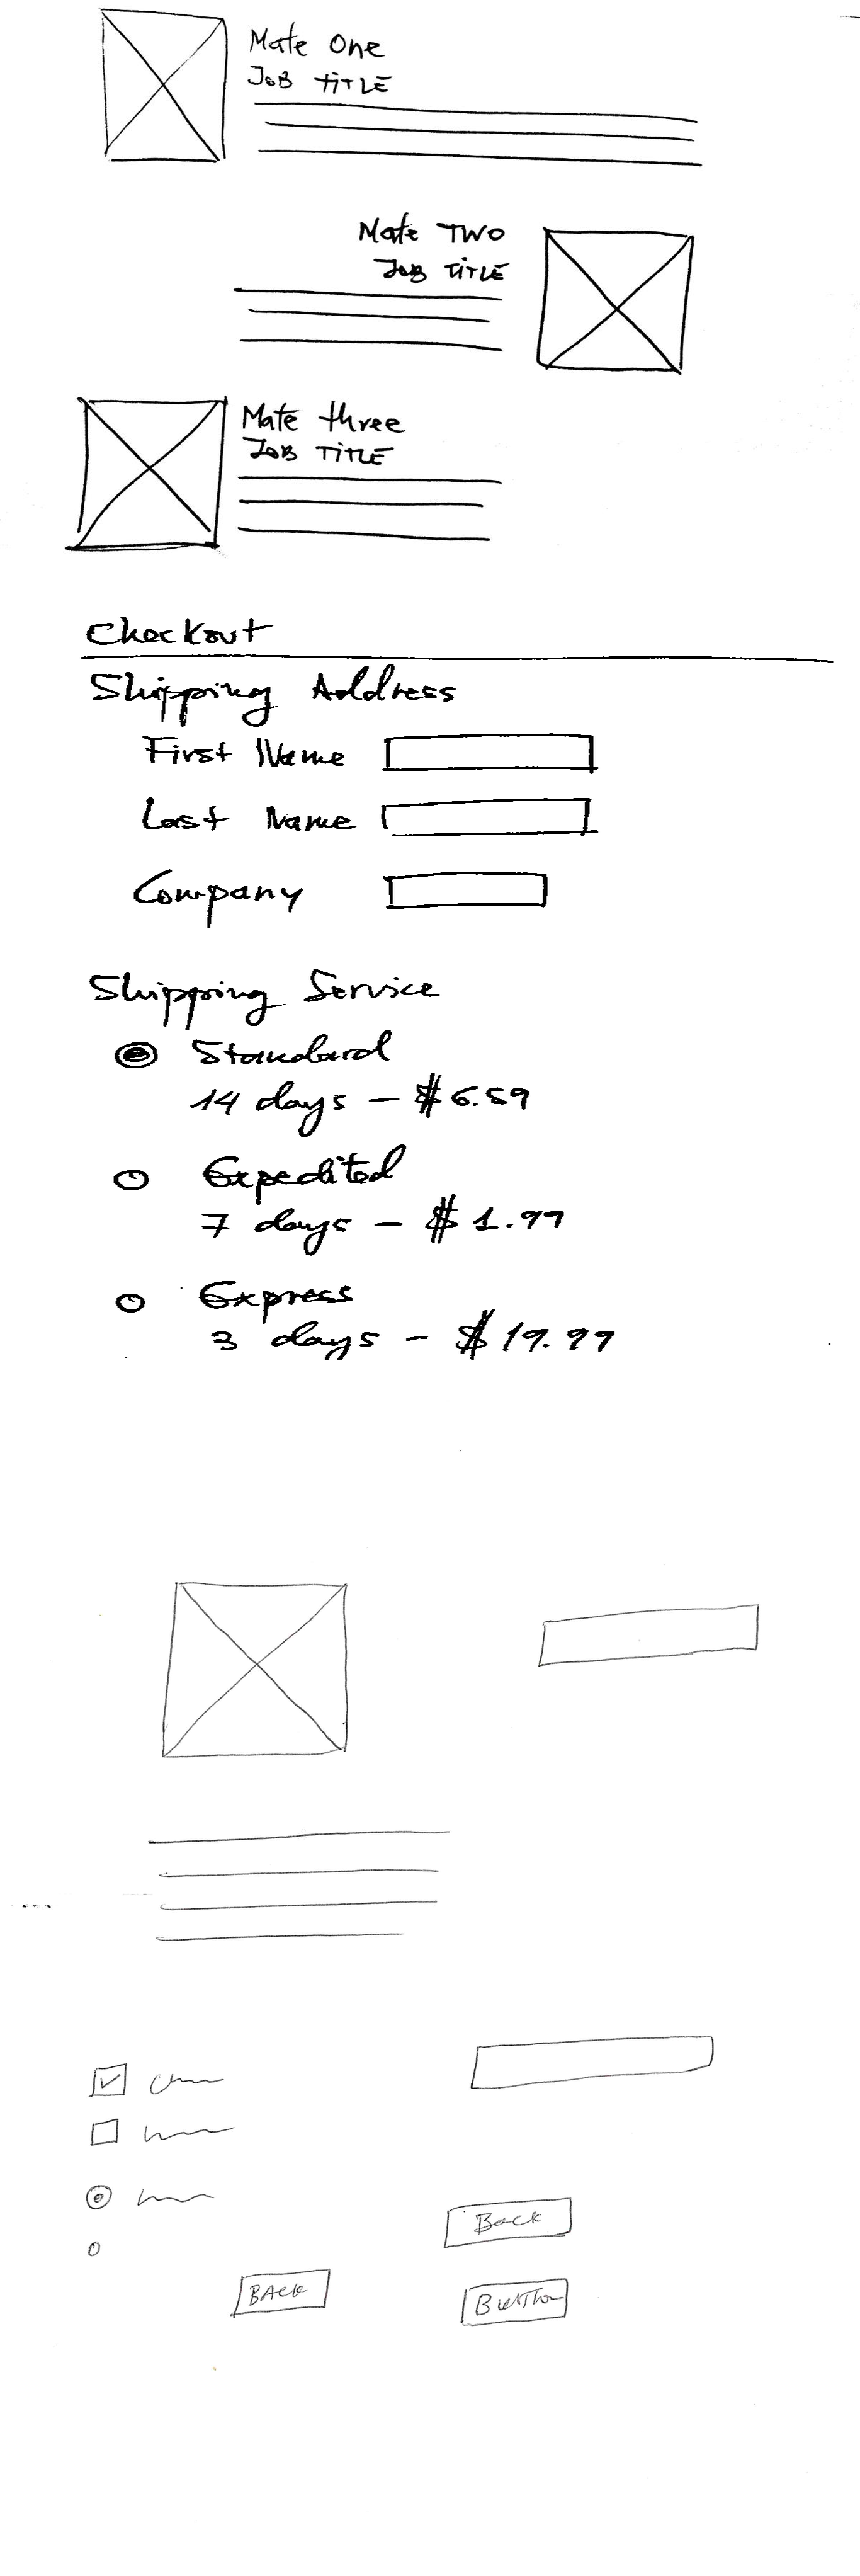 Mate One
JOB TITLE
Mate TWO
JOB TITLE
Mate three
JOB TITLE
Checkout
Shipping Address
First Name
Last Name
Company
Shipping Service
Standard
14 days - $6.59
Expedited
7 days - $1.99
Express
3 days - $19.99
Back
BACK
Button